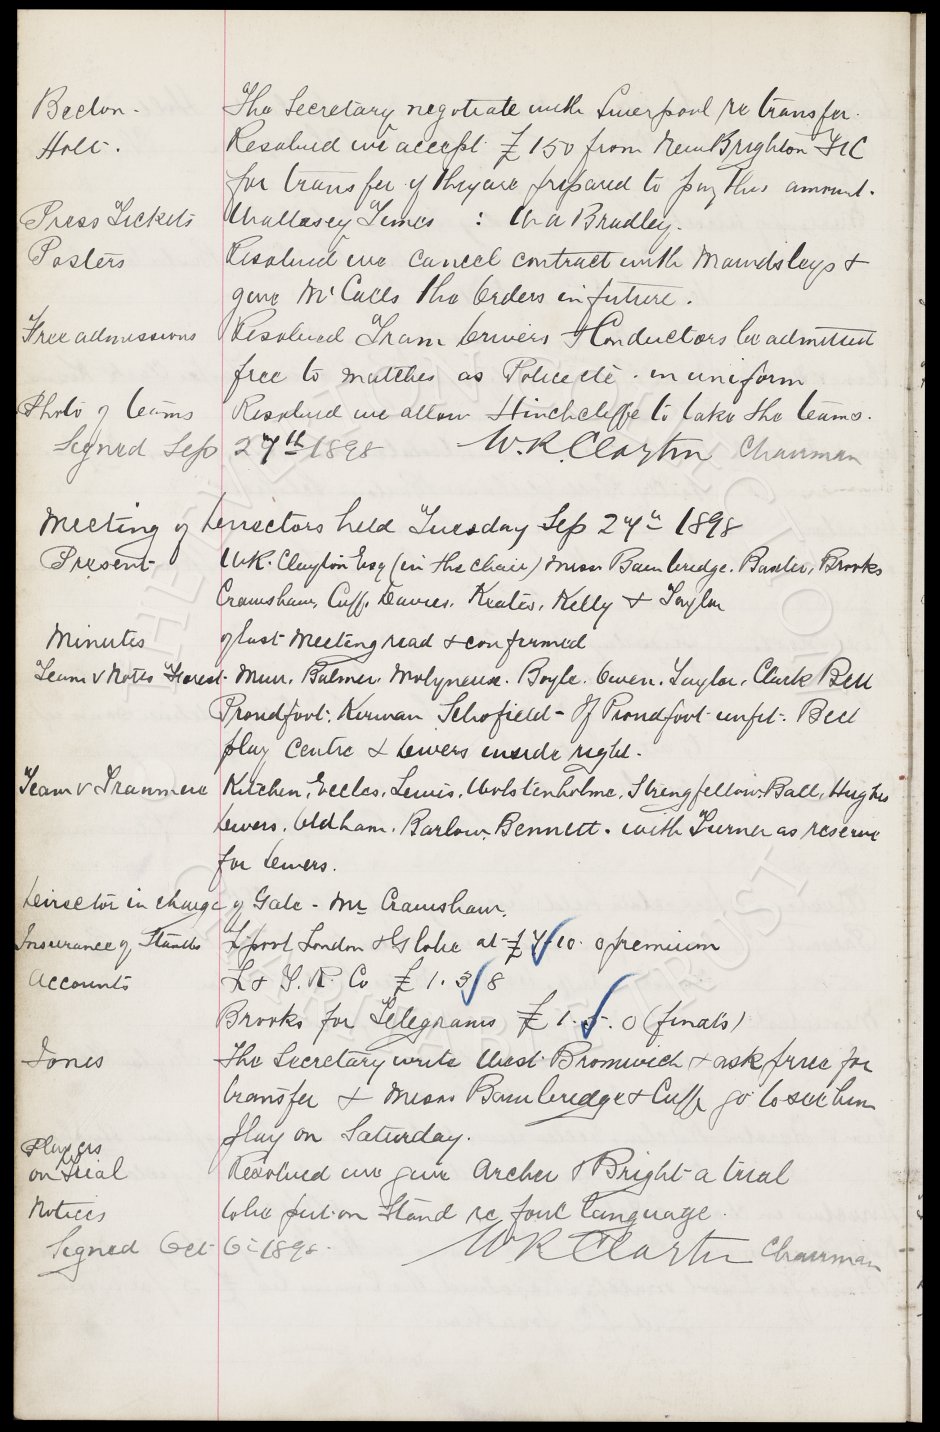 Becton. The Secretary negotiate with Liverpool re transfer.
Holt. Resolved we accept £150 from New Brighton F.C
for transfer if they are prepared to pay this amount.
Press Tickets Wallasey Times : W A Bradley.
Posters Resolved we cancel contract with Mawdsleys &
give McCalls the orders in future.
Free admissions Resolved Tram Drivers & Conductors be admitted
free to matches as Police etc. in uniform
Photo of teams Resolved we allow Hinchcliffe to take the teams.
Signed Sep 27th 1898 W.R. Clayton Chairman
Meeting of Directors held Tuesday Sep 27th 1898
Present W.R. Clayton Esq (in the chair) Messrs Bainbridge. Baxter, Brooks
Crawshaw, Cuff, Davies, Keates, Kelly & Taylor
Minutes of last Meeting read & confirmed
Team v Notts Forest. Muir, Balmer, Molyneux. Boyle. Owen. Taylor. Clark Bell
Proudfoot. Kirwan Schofield - If Proudfoot unfit. Bell
play centre & Divers inside right.
Team v Tranmere Kitchen, Eccles, Lewis, Wolstenholme, Stringfellow. Ball, Hughes
Divers. Oldham. Barlow, Bennett. with Turner as reserve
for Divers.
Director in charge of Gate - Mr Crawshaw.
Insurance of Stands L'pool London & Globe at £7/10. 0 premium
Accounts L & Y. R. Co £1. 3/8
Brooks for Telegrams £1. 5. 0 (finals)
Jones The Secretary write West Bromwich & ask price for
transfer & Messrs Bainbridge & Cuff go to see him
play on Saturday.
Players
on Trial Resolved we give Archer & Bright a trial
Notices to be put on Stand re foul language.
Signed Oct 6th 1898. W R Clayton Chairman
THE EVERTON COLLECTION
CHARITABLE TRUST